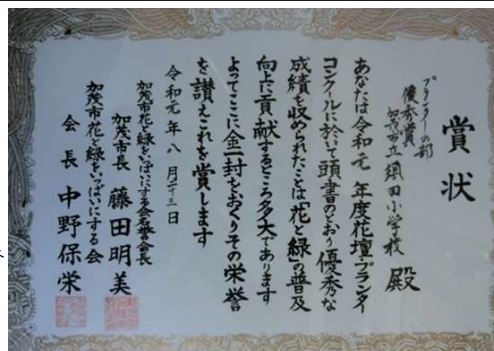 賞状
プランターの部
優秀賞
加茂市立須田小学校 殿
あなたは令和元年度花壇・プランタ
コンクールに於いて頭書のとおり優秀な
成績を収められたことは「花と緑の普及
向上に貢献するところ多大であります
よってここに金一封をおくりその栄誉
を讃えこれを賞します
令和元年八月二十三日
加茂市花と緑をいっぱいにする会名誉会長
加茂市長 藤田明美
加茂市花と緑をいっぱいにする会
会長 中野保栄